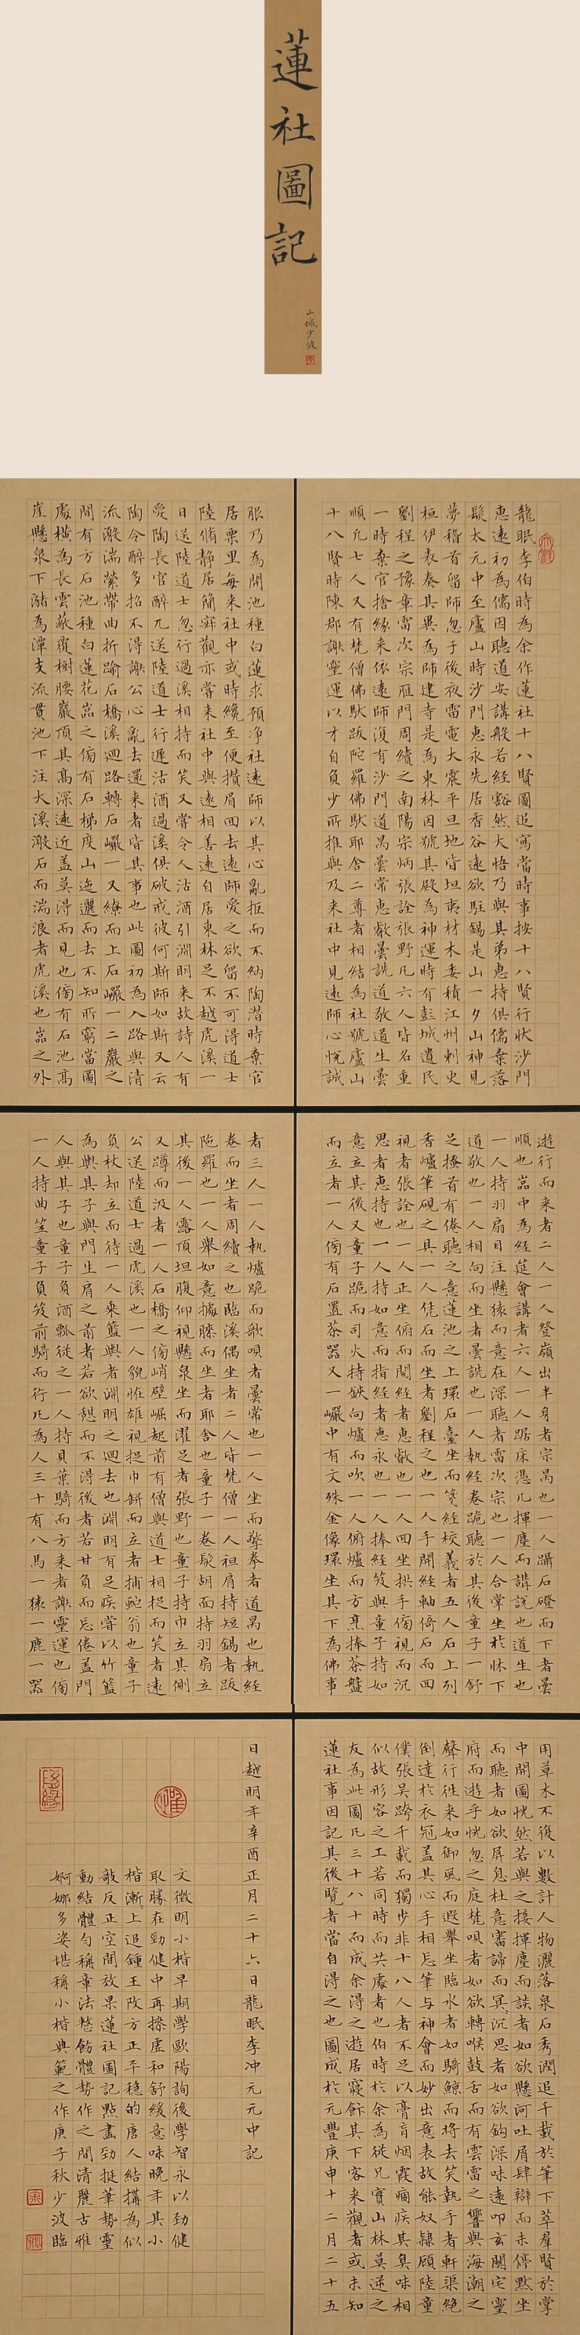 蓮社圖記
山城少波
龍眠李伯時為余作蓮社十八賢圖追寫當時事按十八賢行狀沙門
惠遠初為儒因聽道安講般若經豁然大悟乃與其弟惠持俱儒棄落
髮太元中至廬山時沙門惠永先居香谷遠欲駐錫是山一夕山神見
夢稽首留師忽于後夜雷電大震平旦地皆坦夷材木委積江州刺史
桓伊表奏其異為師建寺是為東林因號其殿為神運時有彭城遺民
劉程之豫章雷次宗雁門周續之南陽宗炳張詮張野凡六人皆名重
一時棄官捨緣來依遠師復有沙門道昺曇常惠叡曇詵道敬道生曇
順凡七人又有梵僧佛馱跋陀羅佛馱耶舍二尊者相結為社號廬山
十八賢時陳郡謝靈運以才自負少所推與及來社中見遠師心悅誠
服乃為開池種白蓮求預净社遠師以其心亂拒而不納陶潛時棄官
居栗里每來社中或時纔至便攢眉回去遠師愛之欲留不可得道士
陸脩靜居簡寂觀亦常來社中與遠相善遠自居東林足不越虎溪一
日送陸道士忽行過溪相持而笑又嘗令人沽酒引淵明來故詩人有
愛陶長官醉兀送陸道士行遲沽酒過溪俱破戒彼何斯師如斯又云
陶令醉多招不得謝公心亂去還來者皆其事也此圖初為入路與清
流激湍縈帶曲折踰石橋溪迴路轉石巖一又繚而上石巖一二巖之
間有方石池種白蓮花嵓之傍有石梯度山迤邐而去不知所窮當圖
處橫為長雲蔽覆樹腰巖頂其髙深遠近蓋莫得而見也傍有石池髙
崖懸泉下瀦為潭支流貫池下注大溪激石而湍浪者虎溪也嵓之外
遊行而來者二人一人登嶺出半身者宗昺也一人躡石磴而下者曇
順也嵓中為經筵會講者六人一人踞床憑几揮麈而講說也道生也
一人持羽扇目注懸猿而意在深聽者雷次宗也一人合掌坐於牀下
道敬也一人相向而坐者曇詵也一人執經卷跪聽於其後童子一舒
足搔首有倦聽之意蓮池之上環石臺坐而箋經校義者五人石上列
香爐筆硯之具一人凭石而坐者劉程之也一人手開經軸倚石而回
視者張詮也一人正坐俯而閱經者惠叡也一人回坐拱手傍視而沉
思者惠持也一人持如意而指經者惠永也一人捧經笈與童子持如
意立其後又童子跪而司火持鋏向爐而吹一人俯爐而方烹捧茶盤
而立者一人傍有石置茶器又一巖中有文殊金像環坐其下為佛事
者三人一人執爐跪而歌唄者曇常也一人坐而擎拳者道昺也執經
卷而坐者周續之也臨溪偶坐者二人皆梵僧一人袒肩持短錫者跋
陁羅也一人舉如意據膝而坐者耶舍也童子一卷髮胡而持羽扇立
其後一人露頂坦腹仰視懸泉坐而濯足者張野也童子持巾立其側
又蹲而汲者一人石橋之傍峭壁崛起前有僧與道士相捉而笑者遠
公送陸道士過虎溪也一人貌怪雄視捉巾餠而立者捕蛇翁也童子
負杖却立而待一人乘籃輿者淵明之迴去也淵明有足疾嘗以竹籃
為輿其子與門生肩之前者若欲憇而不得後者若甘負而忘倦蓋門
人與其子也童子負酒瓢從之一人持貝葉騎而方來者謝靈運也傍
一人持曲笠童子負笈前騎而行凡為人三十有八馬一猿一鹿一器
用草木不復以數計人物灑落泉石秀潤追千載於筆下萃羣賢於掌
中開圖恍然若與之接揮麈而談者如欲懸河吐屑肆辯而未停默坐
而聽者如欲屏息杜意審諦而冥沉思者如欲鈎深味遠叩玄關定靈
府而遊乎恍忽之庭梵唄者如欲轉喉鼓舌而有雲雷之響與海潮之
聲行往來如御風而遐舉坐臨水者如騎鯨而將去笑執手者軒渠絕
倒達於衣冠蓋其心手相忘筆与神會而妙出意表故能奴隸顧陸童
僕張吳跨千載而獨步非十八人者不足以膏肓烟霞痼疾其臭味相
似故形容之工若同時而共處者也伯時於余為從兄實山林莫逆之
友為此圖凡三十八十而成余得之遊居寢飲其下客來觀者或未知
蓮社事因記其後覽者當自得之也圖成於元豐庚申十二月二十五
日越明年辛酉正月二十六日龍眠李冲元元中記
文徵明小楷早期學歐陽詢後學智永以勁健
取勝在勁健中再摻虛和舒緩意味晚年其小
楷漸上追鍾王改方正平稳的唐人結搆為似
敧反正空間放果蓮社圖記點畫勁挺筆勢靈
動結體勻稱章法整飭體勢作之間清麗古雅
婀娜多姿堪稱小楷典範之作庚子秋少波臨